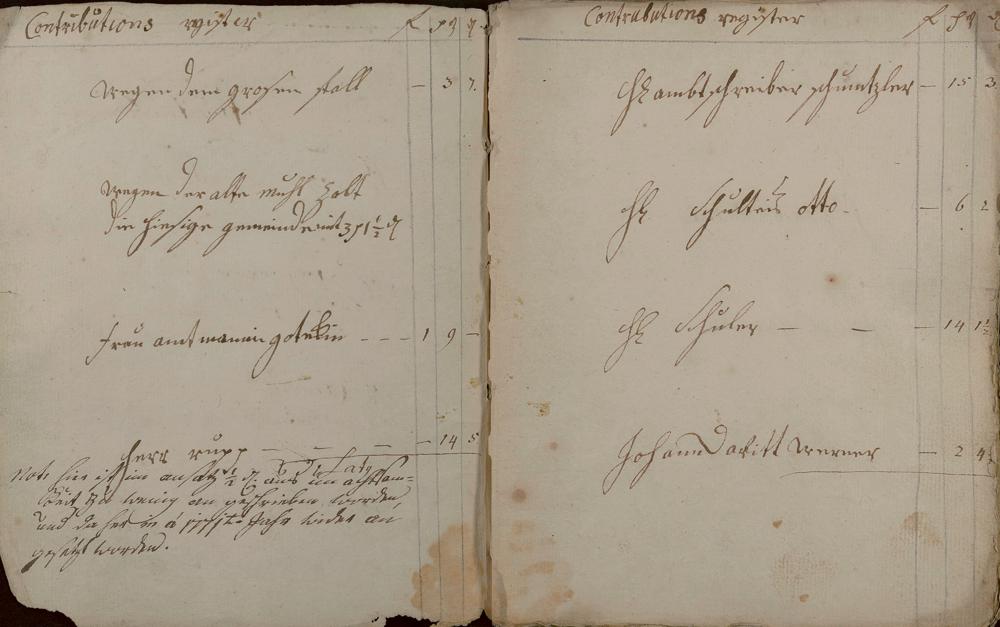 Contributions register f pf q
wegen dem grosen stall — 3 7.
wegen der alte muhl zalt
die hiesige gemeinde mit 3 pf 1½ q
frau amtmanin gotekin - - - 1 9 —
herr rupp — — — 14 5
Nota hier ist im ansatz ½ q. aus
zu wenig an geschrieben worden,
und da her in a Jahr wider an
gesetzt worden.
Contributions register f pf q
H ambtschreiber schuntzler — 15 3
H Schulteis otto — 6 2
H Schuler — — — 14 1½
Johann Davitt werner — 2 4